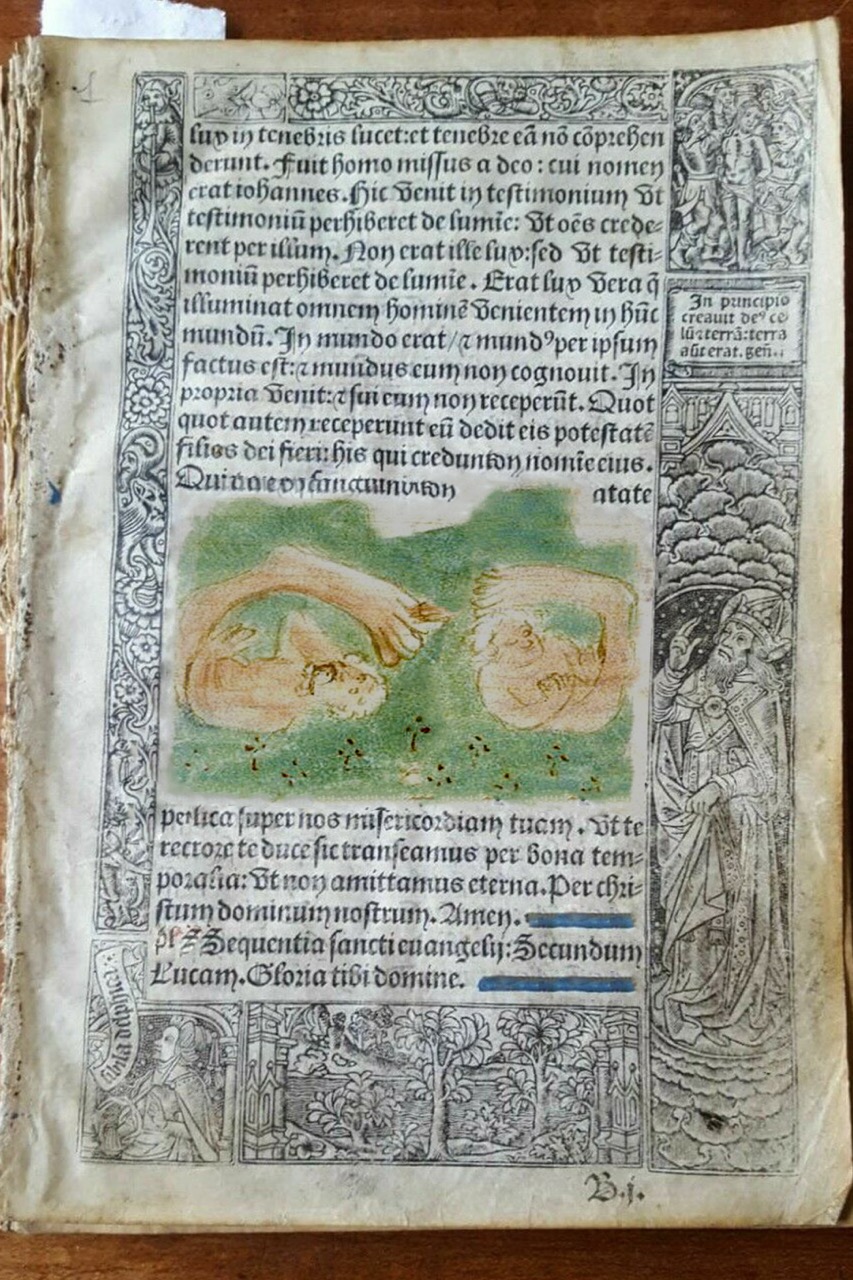 1
lux in tenebris lucet:et tenebre eã nõ cõprehen
derunt. Fuit homo missus a deo: cui nomen
erat iohannes. Hic venit in testimonium vt
testimoniũ perhiberet de lumie: vt oẽs crede-
rent per illum. Non erat ille lux:sed vt testi-
moniũ perhiberet de lumĩe. Erat lux vera q̃
illuminat omnem hominẽ venientem in hũc
mundũ. In mundo erat/⁊ mundꝰ per ipsum
factus est:⁊ mundus eum non cognouit. In
propria venit:⁊ sui eum non receperũt. Quot
quot autem receperunt eũ dedit eis potestatẽ
filios dei fieri: his qui credunt in nomĩe eius.
Qui
atate
super nos misericordiam tuam. Vt te
rectore te duce sic transeamus per bona tem-
poralia: vt non amittamus eterna. Per chri-
stum dominum nostrum. Amen.
Sequentia sancti euangelij: Secundum
Lucam. Gloria tibi domine.
In principio
creauit deꝰ ce
lũ⁊terrã:terra
aũt erat. geñ.i
B.j.